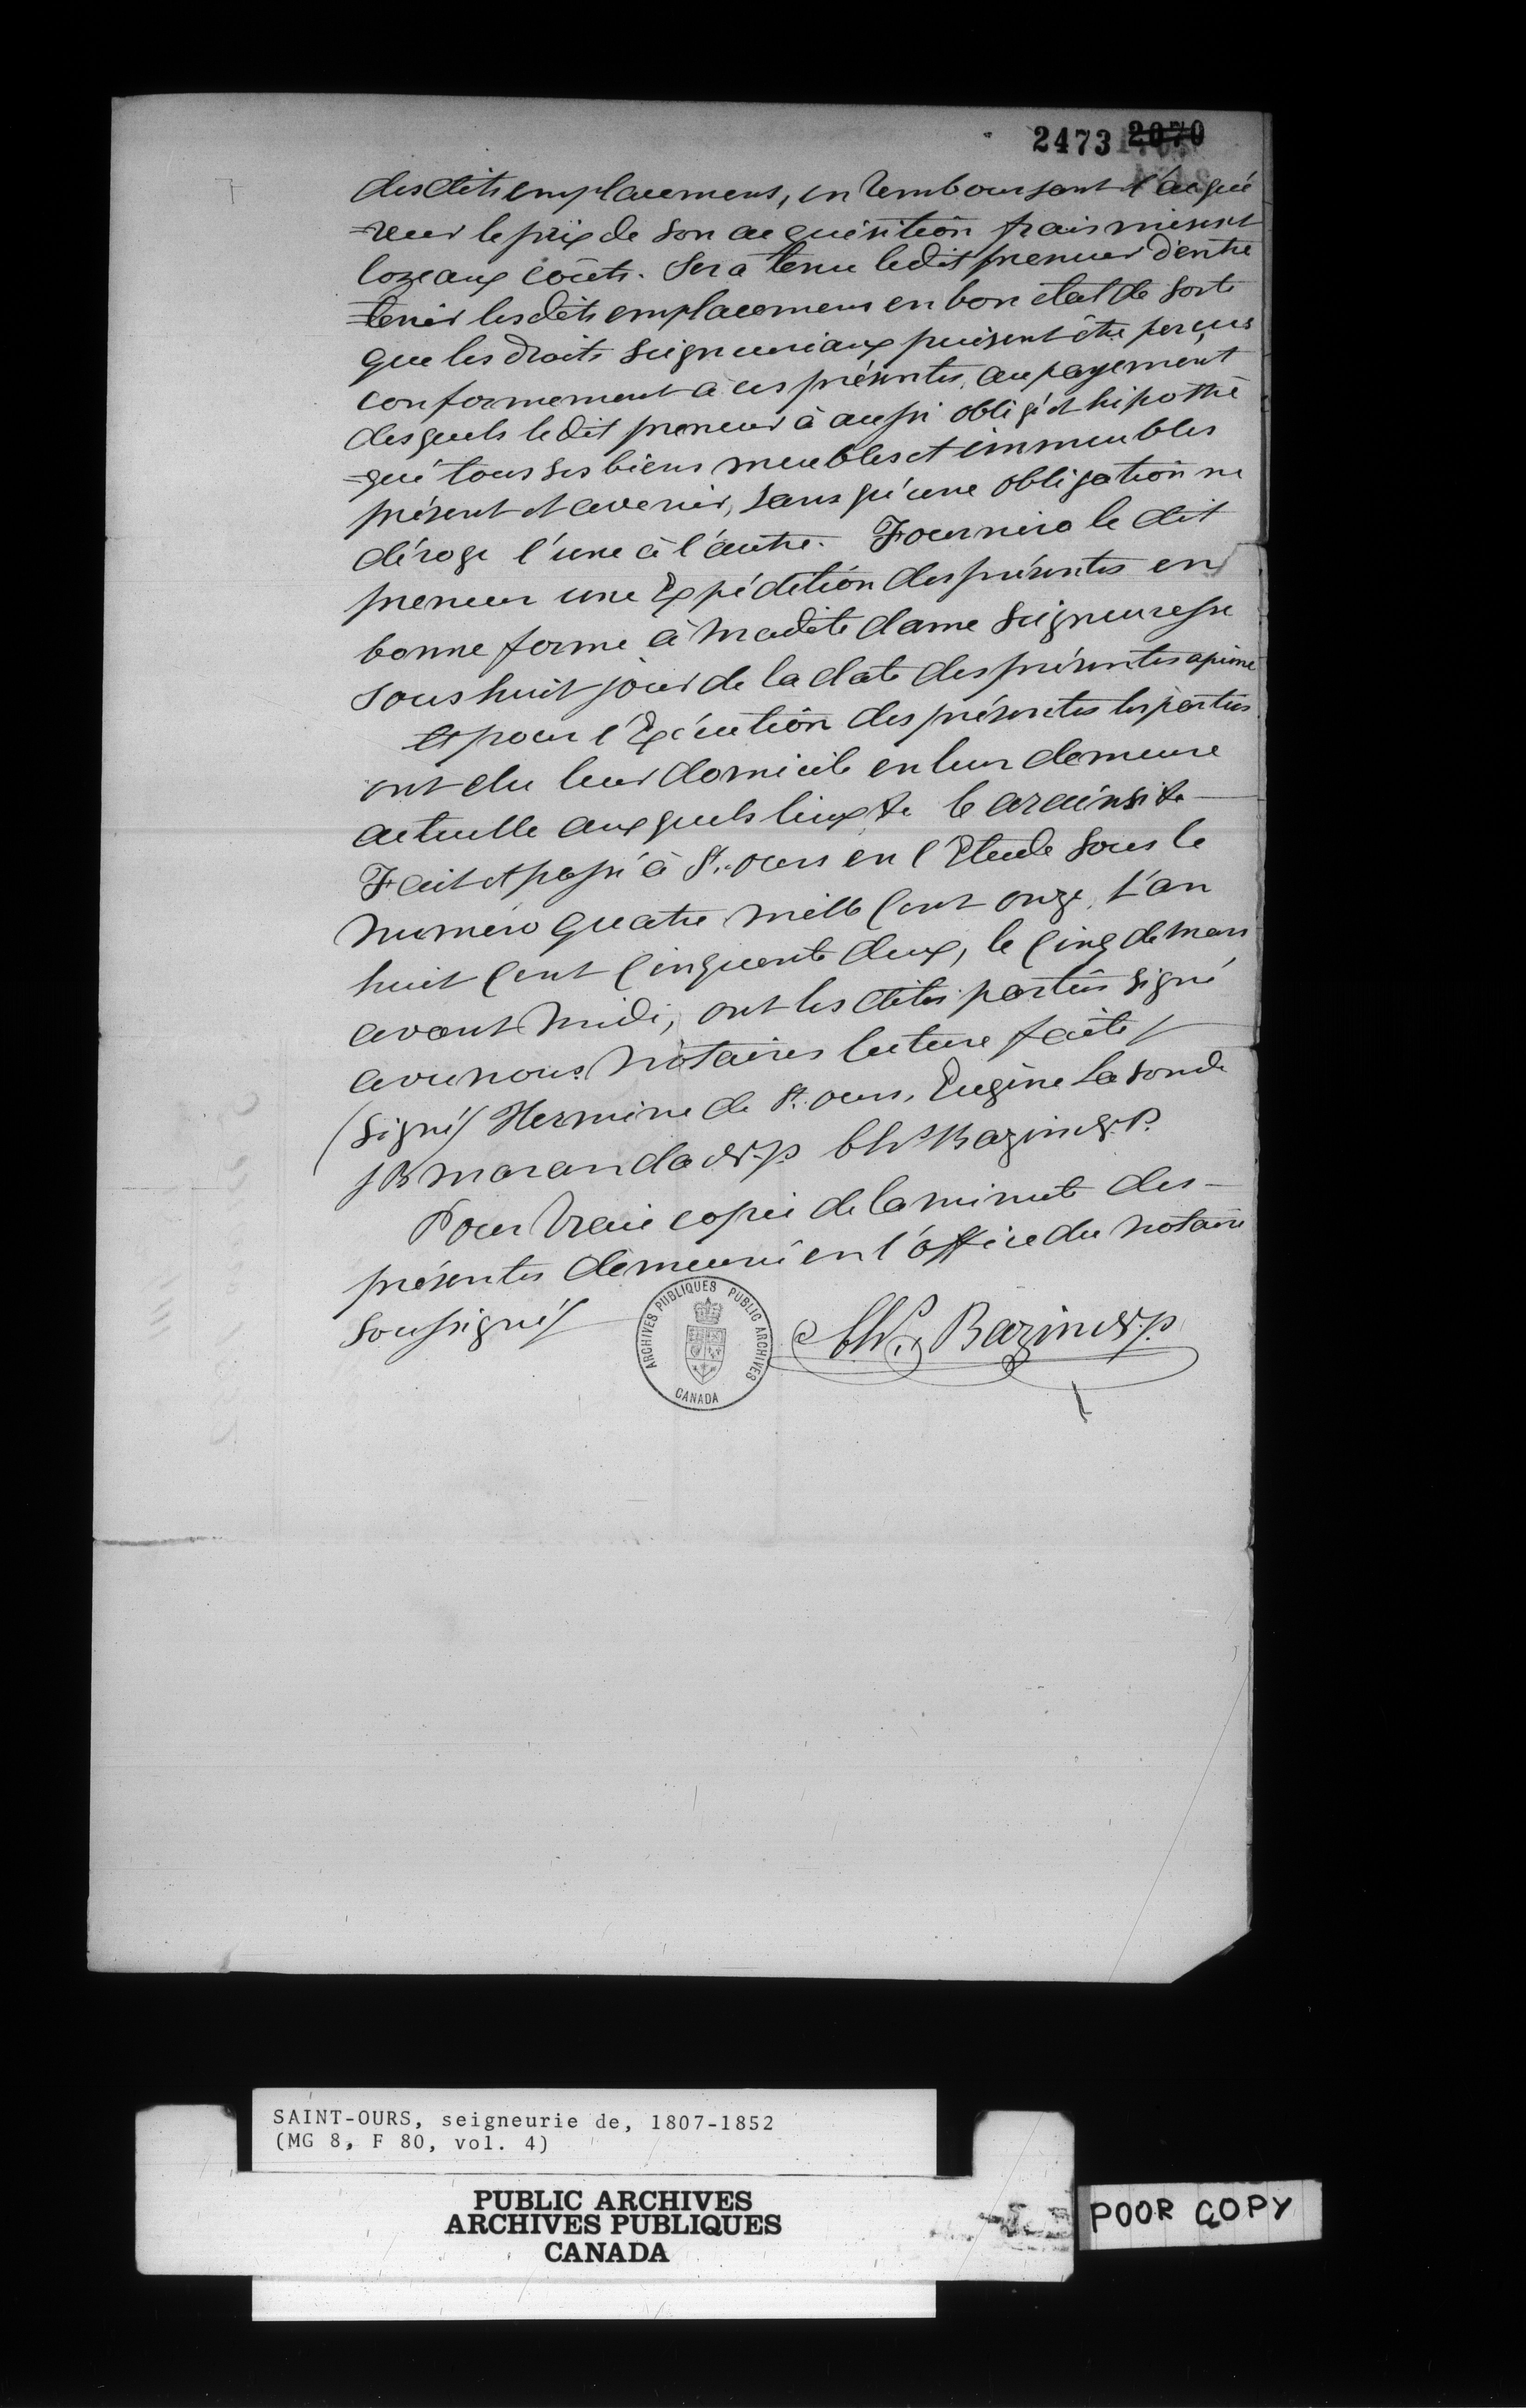 2473 2070
desdits emplacemens, en remboursant l'acqué
=reur le prix de son acquisition frais mises et
lozeaux coûts. Sera tenu ledit preneur d'entre
=tenir lesdits emplacemens en bon état de sorte
que les droits seigneuriaux puisent être perçus
conformement à ces présentes, au payement
desquels le dit preneur à aussi obligé et hipothé
=qué tous ses biens meubles et immeubles
présent et avenir, sans qu'une obligation ne
déroge l'une à l'autre. Fournira le dit
preneur une Expédition des présentes en
bonne forme à Madite dame Seigneuresse
sous huit jour de la date des présentes
Et pour l'Exécution des présentes les parties
ont élu leur domicile en leur demeure
actuelle auxquels lieux &a
Fait et passé à St. Ours en l'Etude sous le
numéro quatre mille cent onze, L'an
huit cent cinquante deux, le cinq de mars
avant midi, ont les dites parties signé
avec nous Notaires lecture faite/
(signé/ Hermine de St. Ours, Eugène La
JB Maranda N.P. Chs Bazin N.P.
Pour Vraie copie de la minute des
présentes demeuré en l'office du notaire
soussigné/
Chs. Bazin N.P.
ARCHIVES PUBLIQUES PUBLIC ARCHIVES
CANADA
SAINT-OURS, seigneurie de, 1807-1852
(MG 8, F 80, vol. 4)
PUBLIC ARCHIVES
ARCHIVES PUBLIQUES
CANADA
POOR COPY